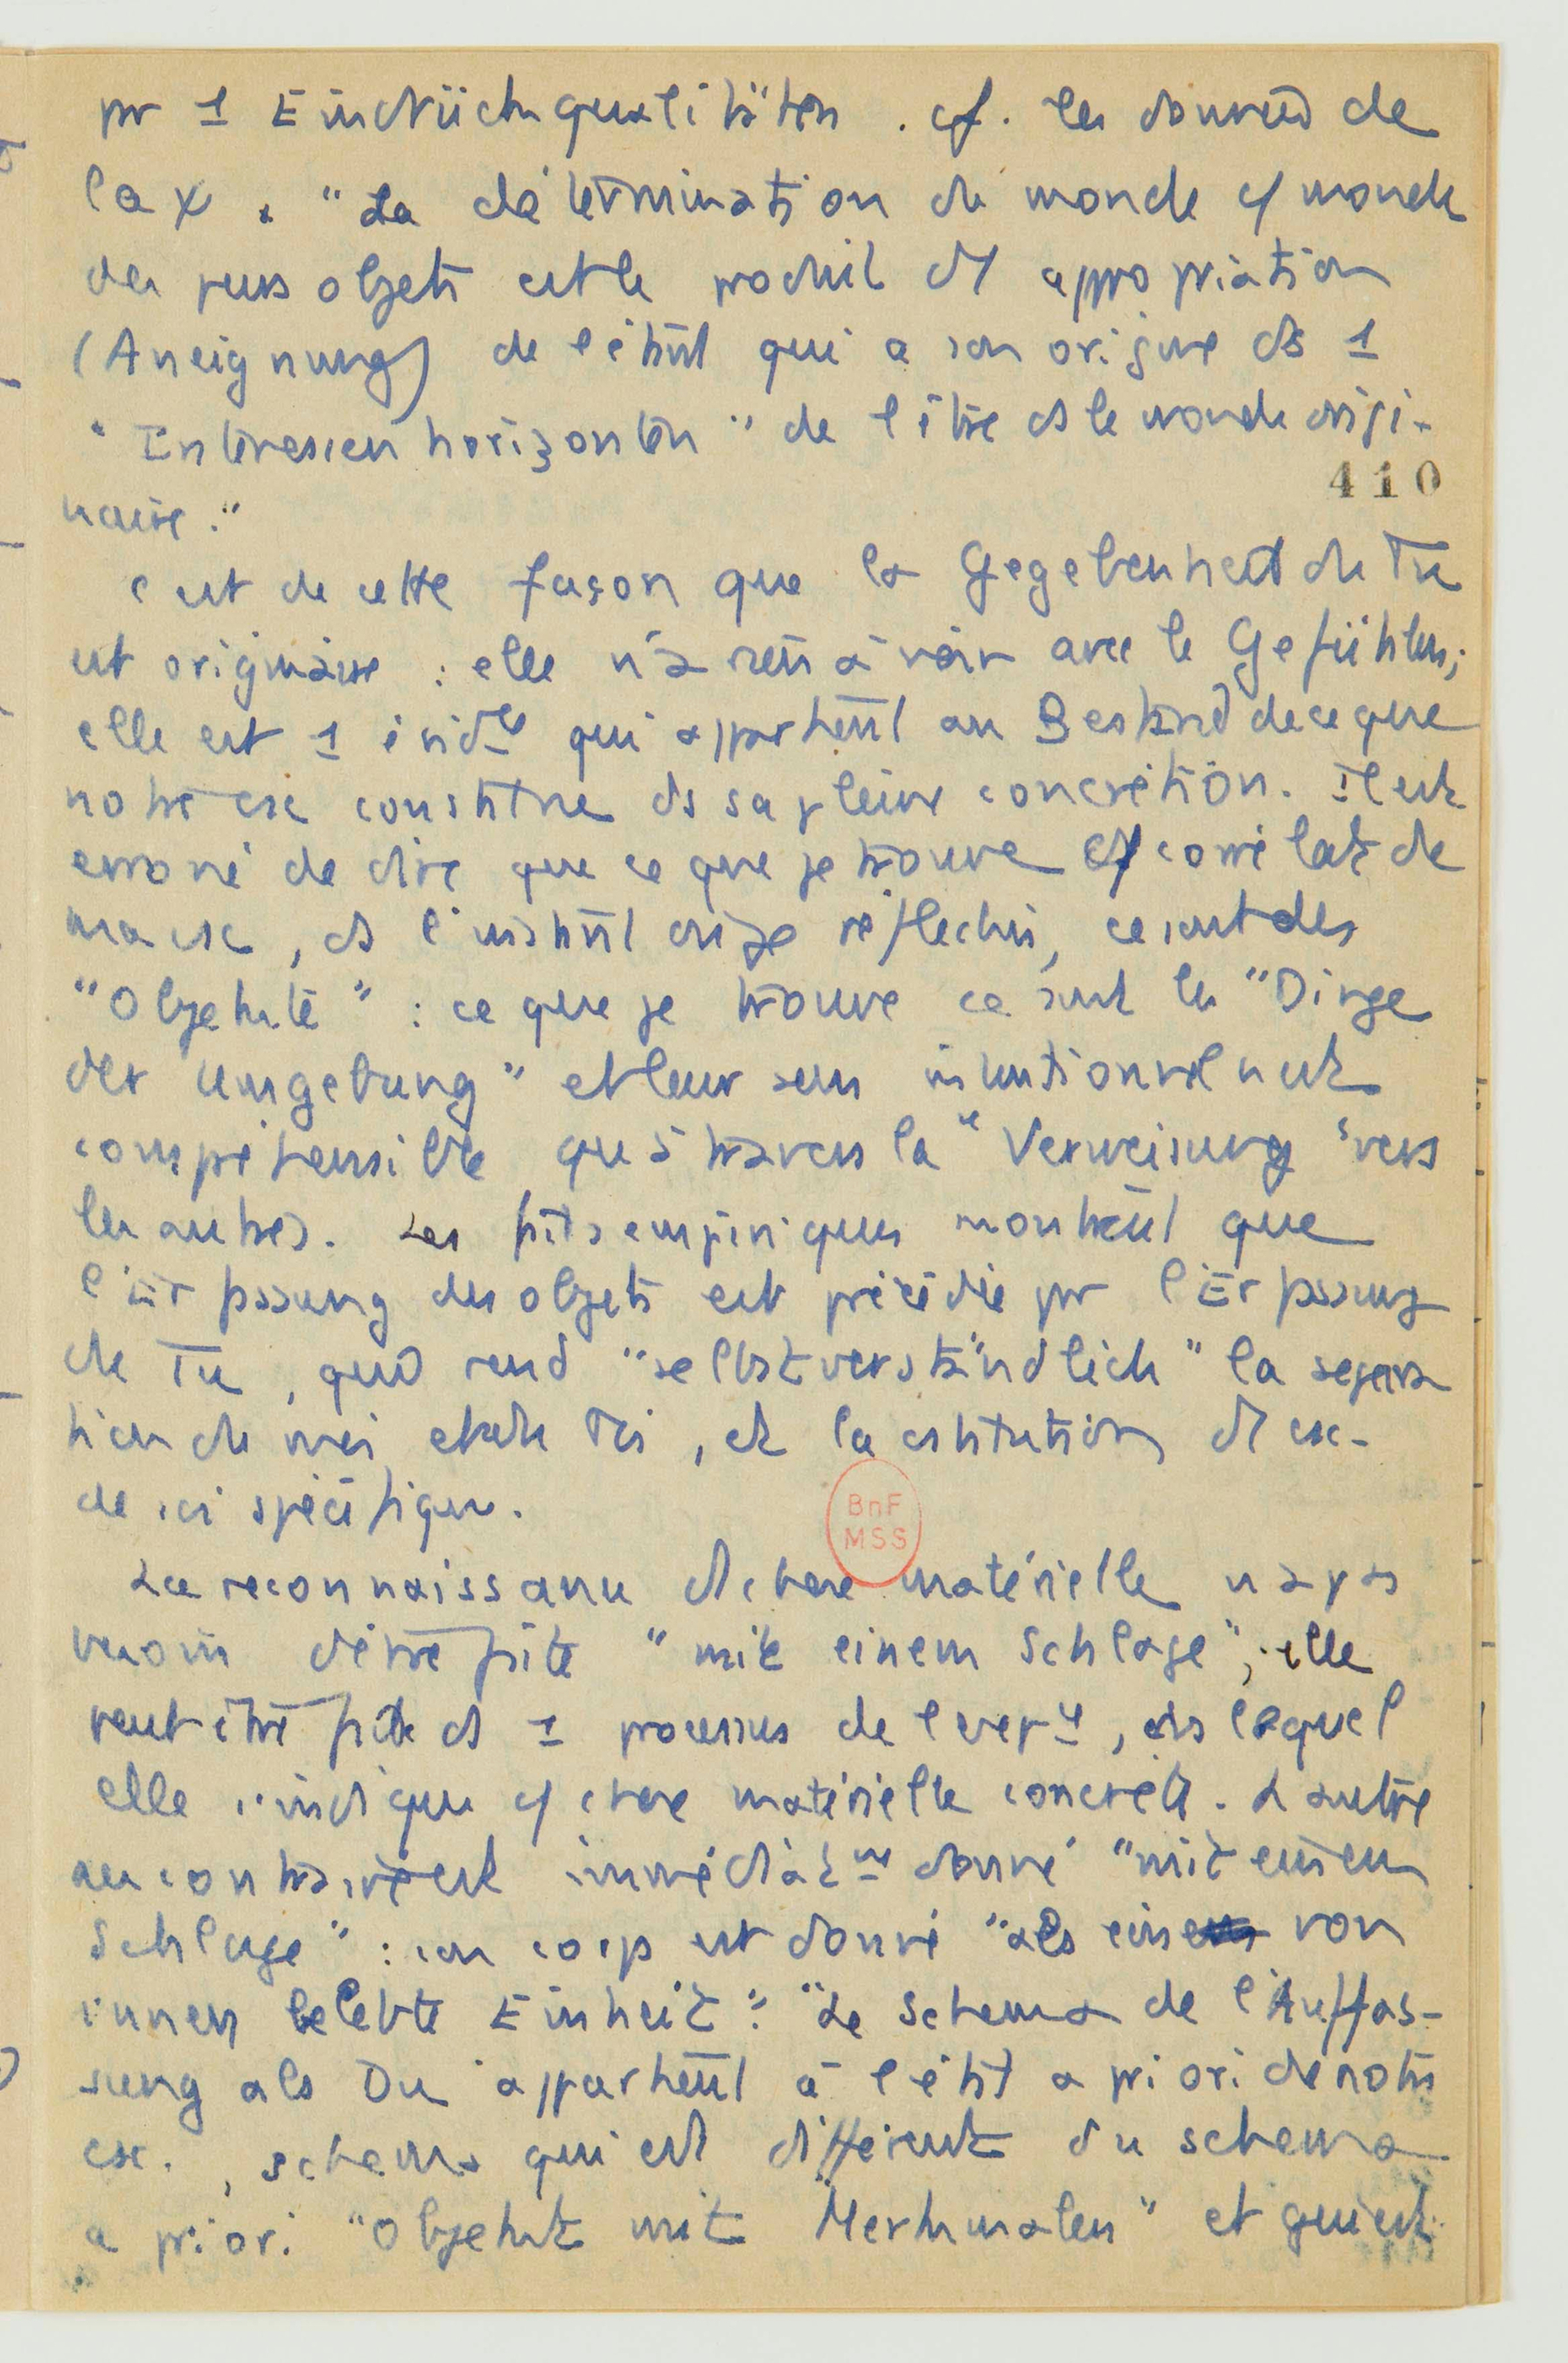 pr 1 Eindrücksqualitäten. cf. les données de
la x. "La détermination du monde cf monde
des purs objets est le produit d'1 appropriation
(Aneignung) de l'étant qui a son origine ds 1
"Interessenhorizonten" de l'être ds le monde origi-
410
naire."
C'est de cette façon que la Gegebenheit du Tu
est originaire : elle n'a rien à voir avec le Gefühlen;
elle est 1 évid^ce qui appartient au Bestand de ce que
notre csc constitue ds sa pleine concrétion. Il est
erroné de dire que ce que je trouve cf corrélat de
ma csc, ds l'instant orige réfléchi, ce sont des
"Objekte" : ce que je trouve ce sont les "Dinge
der Umgebung" et leur sens intentionnel n'est
compréhensible qu'à travers la "Verweisung" vers
les autres. Les faits empiriques montrent que
l'Erfassung des objets est précédée pr l'Erfassung
du Tu, qui rend "selbstverständlich" la sépara
tion du moi et du Toi, et la cstitution d'1 csc-
de soi spécifique.
BnF
MSS
La reconnaissance d'1 chose matérielle n'a pas
besoin d'être faite "mit einem Schlage"; elle
peut être faite ds 1 processus de l'expce, ds lequel
elle s'indique cf chose matérielle concrète. L'autre
au contraire est immédiat^mt donné "mit einem
Schlage" : son corps est donné "als eine von
innen belebte Einheit". "Le schema de l'Auffas-
sung als Du" appartient à l'état a priori de notre
csc., schema qui est différent du schema
a priori "Objekt mit Merkmalen" et qui est